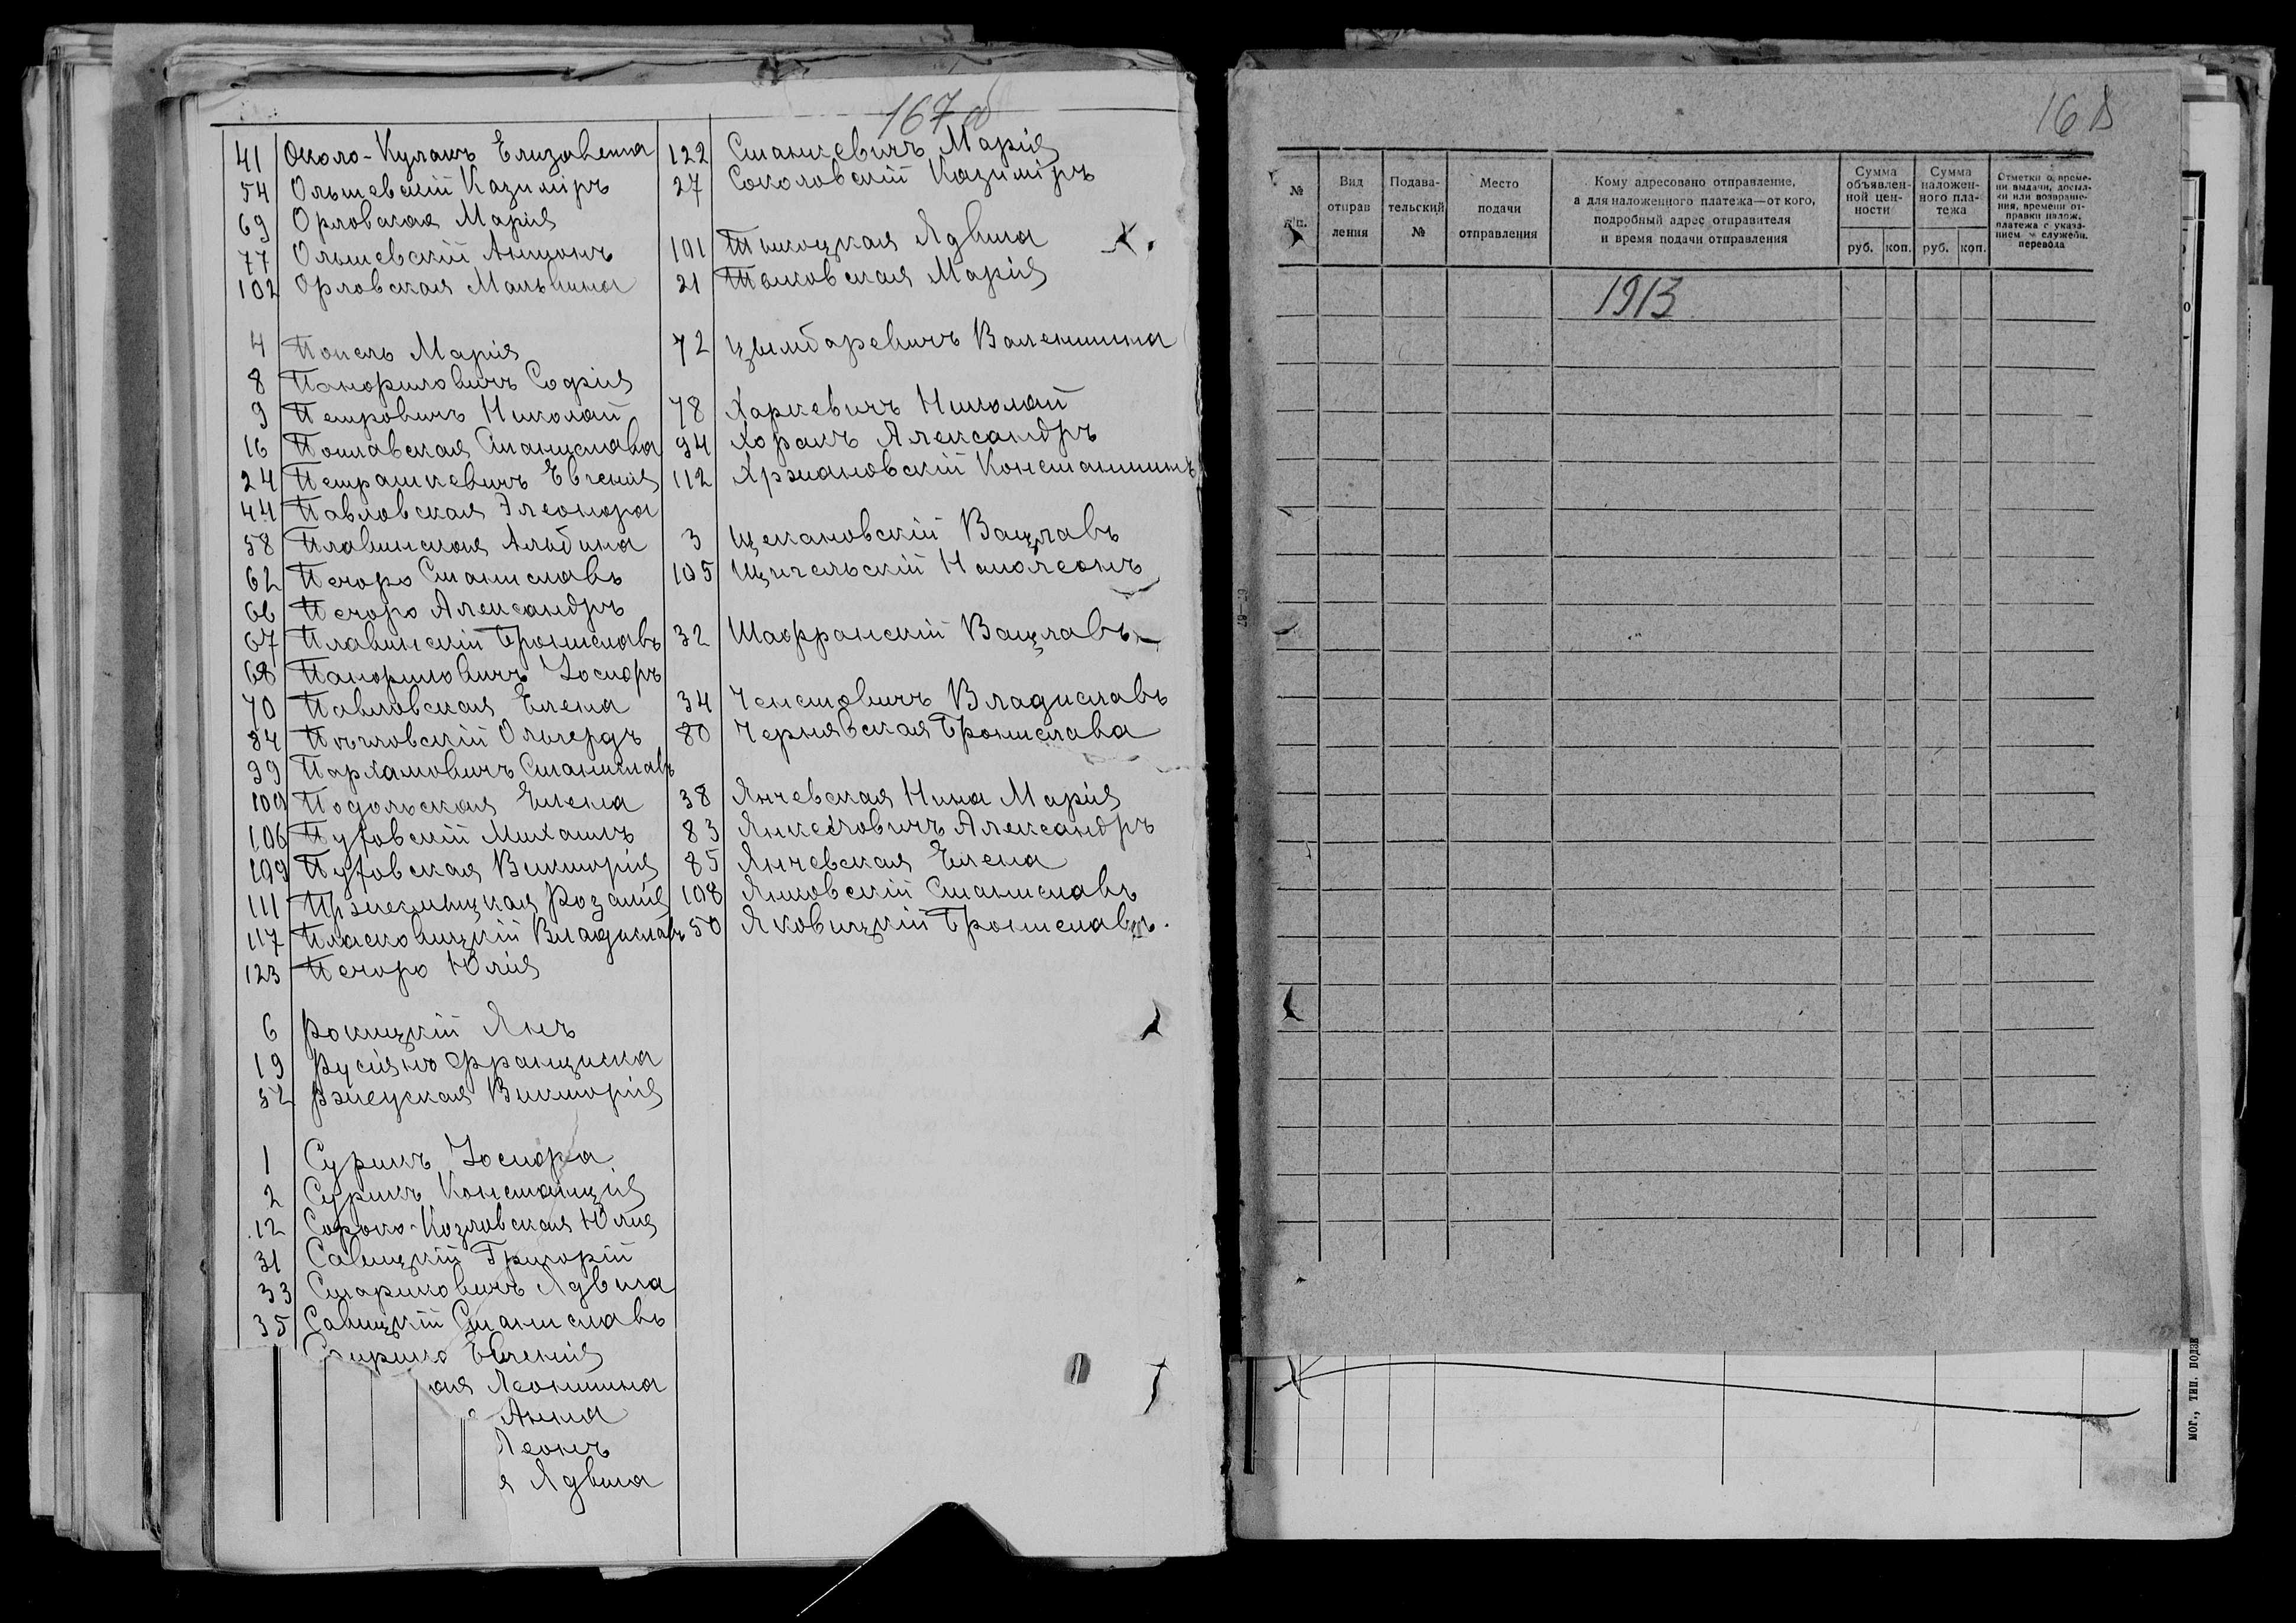 167 об
41 Около-Кулакъ Елизавета
54 Ольшевскій Казиміръ
69 Орловская Марія
77 Ольшевскій Антонъ
102 Орловская Мальвина
4 Попель Марія
8 Панфиловичъ Софія
9 Петровичъ Николай
16 Поплавская Станислава
24 Петрашкевичъ Евгенія
44 Павловская Элеонора
58 Плавинская Альбина
62 Печоро Станиславъ
66 Печоро Александръ
67 Плавинскій Брониславъ
68 Панфиловичъ Іосифъ
70 Павловская Елена
84 Ольгердъ
99 Пархамовичъ Станиславъ
100 Подольская Елена
106 Михаилъ
109 Викторія
111 Розалія
117 Пласковицкій Владиславъ
123 Печоро Юлія
6 Рокицкій Янъ
19 Русіянъ Франциска
52 Викторія
1 Сурикъ Іосифа
2 Сурикъ Констанція
12 Сороко-Козловская Юлія
31 Савицкій Григорій
33 Стариковичъ Ядвига
35 Савицкій Станиславъ
Евгенія
ая Леонтина
Анна
Леонъ
я Ядвига
122 Станкевичъ Марія
27 Соколовскій Казиміръ
101 Тыкоцкая Ядвига
21 Марія
72 Цымбаревичъ Валентина
78 Харкевичъ Николай
94 Хоракъ Александръ
112 Хржановскій Константинъ
3 Щекановскій Вацлавъ
105 Щигельскій Наполеонъ
32 Шафранскій Вацлавъ
34 Ченстовичъ Владиславъ
80 Чернявская Бронислава
38 Янчевская Нина Марія
83 Александръ
85 Янчевская Елена
108 Янковскій Станиславъ
50 Яковицкій Брониславъ.
№ п/п.
Вид отправ ления
Подава-тельский №
Место подачи отправления
Кому адресовано отправление,
а для наложенного платежа—от кого,
подробный адрес отправителя
и время подачи отправления
Сумма объявлен-ной цен-ности
Сумма наложен-ного пла-тежа
Отметки о време-
ни выдачи, досыл-
ки или возвраще-
ния, времени от-
правки налож.
платежа с указа-
нием № служебн.
перевода
руб. коп. руб. коп.
1913
МОГ., ТИП. ПОДЗЕ